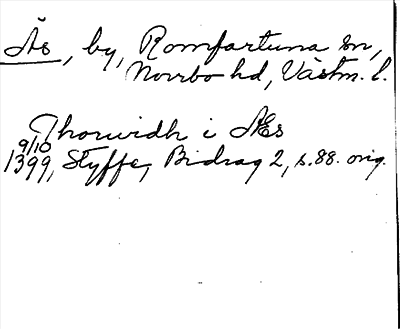 Ås, by, Romfartuna sn,
Norrbo hd, Västm. l.
Thorvidh i Æs
9/10
1399, Styffe, Bidrag 2, s. 88. orig.